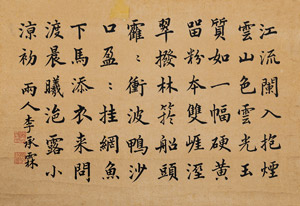 江流闌入抱煙
雲山色雲光玉
質如一幅硬黃
留粉本雙崖溼
翠撥林船頭
靃〻衝波鴨沙
口盈〻挂網魚
下馬添衣來問
渡晨曦浥露小
涼初 雨人李承霖